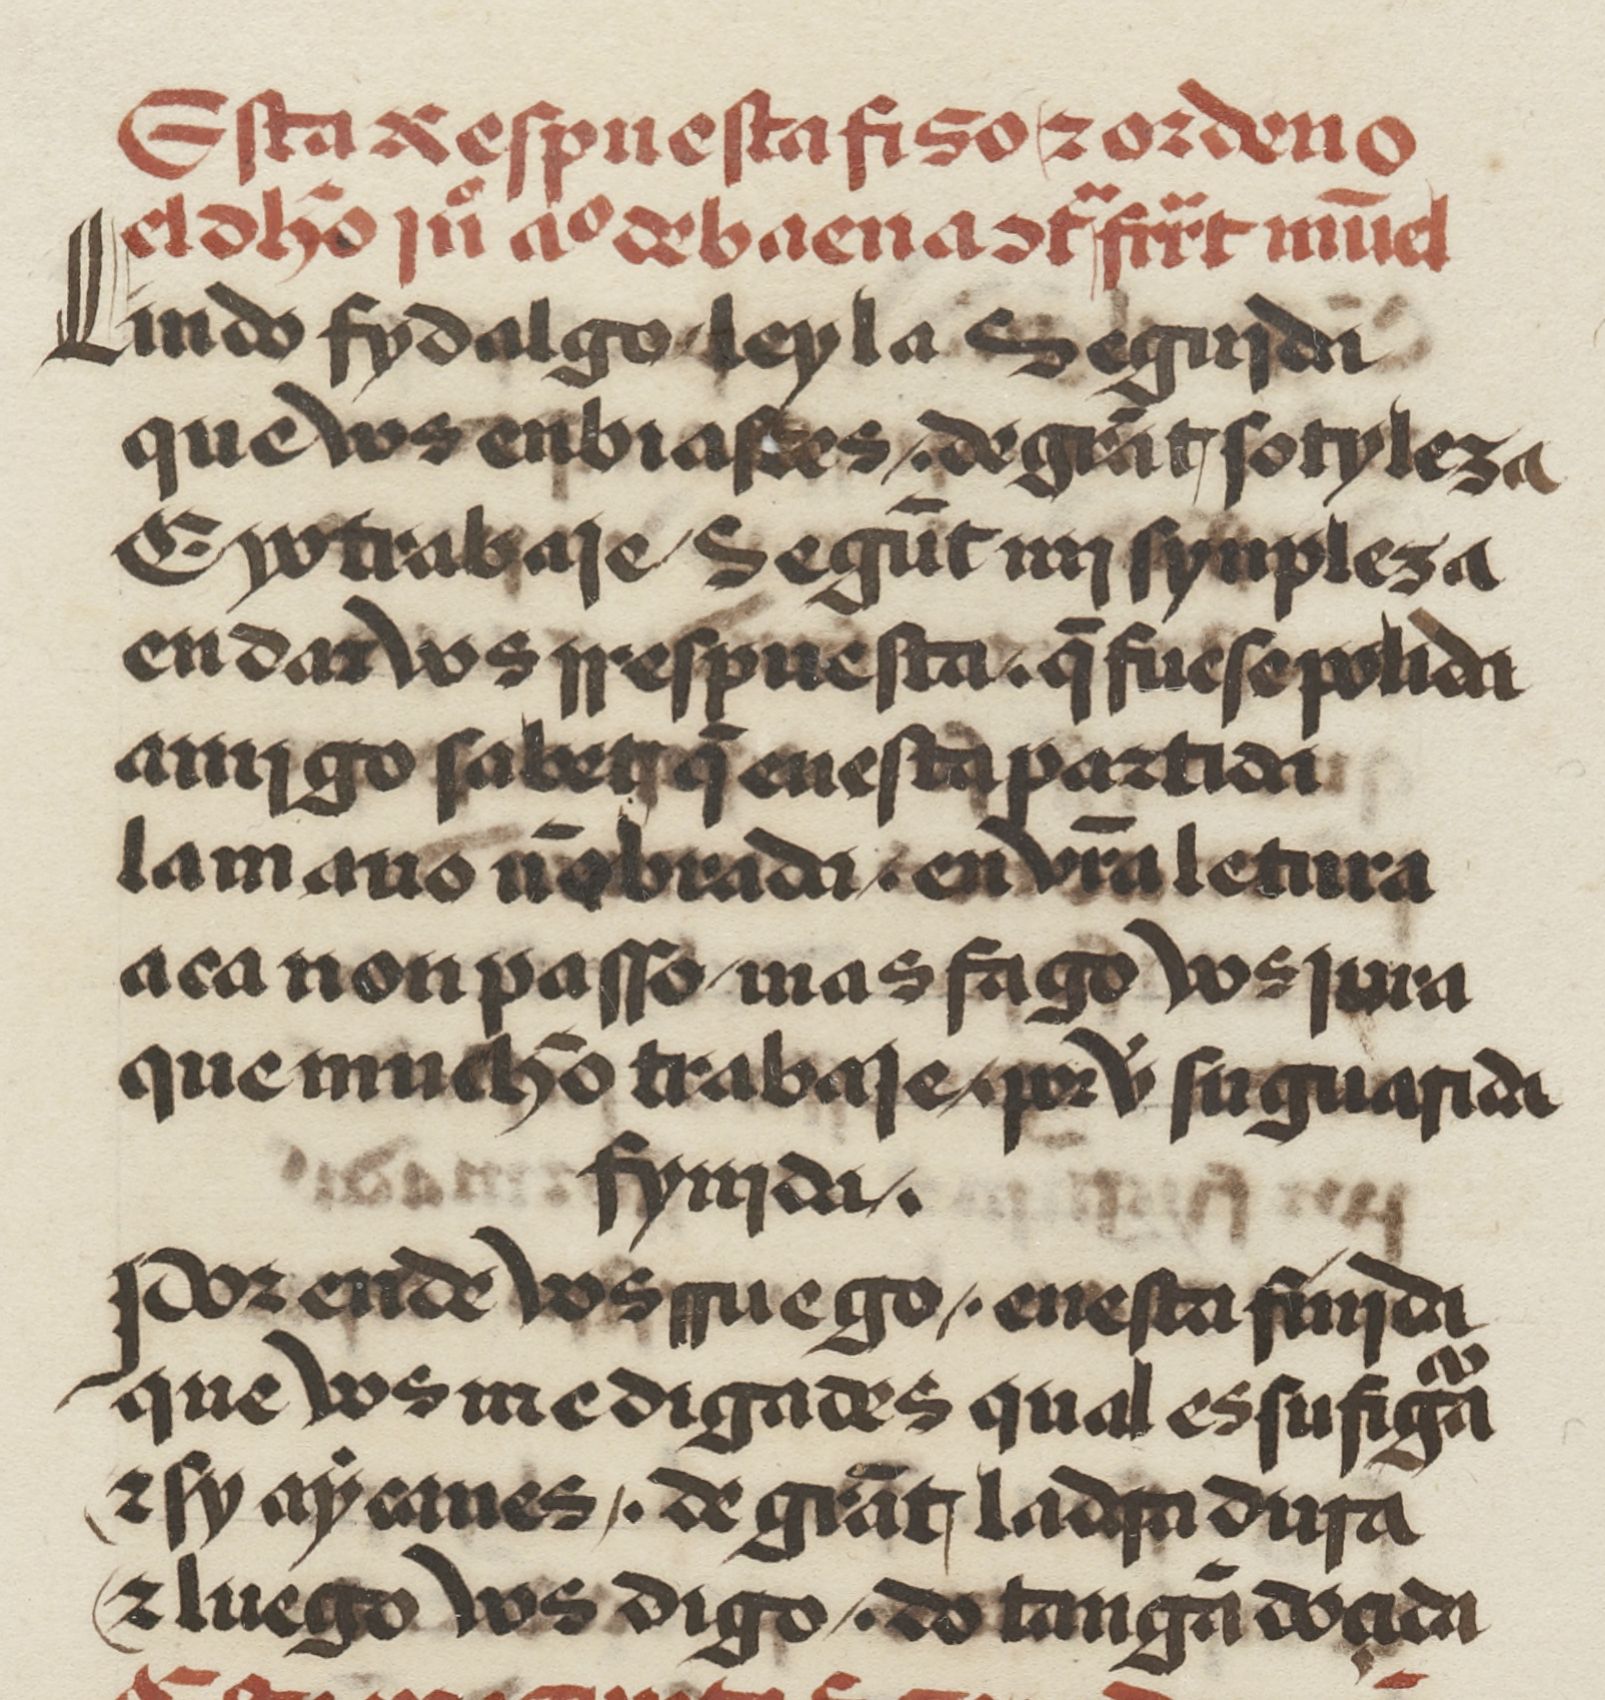 Esta Respuesta fiso τ ordeno
el dho juº aº de baena ↄtª ferrt mūel
Lindo fydalgo ley la Seguida
que vos enbiastes de grāt sotyleza
E yo trabaje Segūt mj synpleza
en dar vos rrespuesta q̄ fuese polida
amjgo sabet q̄ en esta partida
la mano nōbrada en vrā letura
aca non passo mas fago vos jura
que mucho trabaje por v̇ su guarida
fynjda
Por ende vos rruego en esta fīnjda
que vos me digades qual es su figᵃra
τ sy aẏ canes de grāt ladradura
τ luego vos digo do tangā doçida